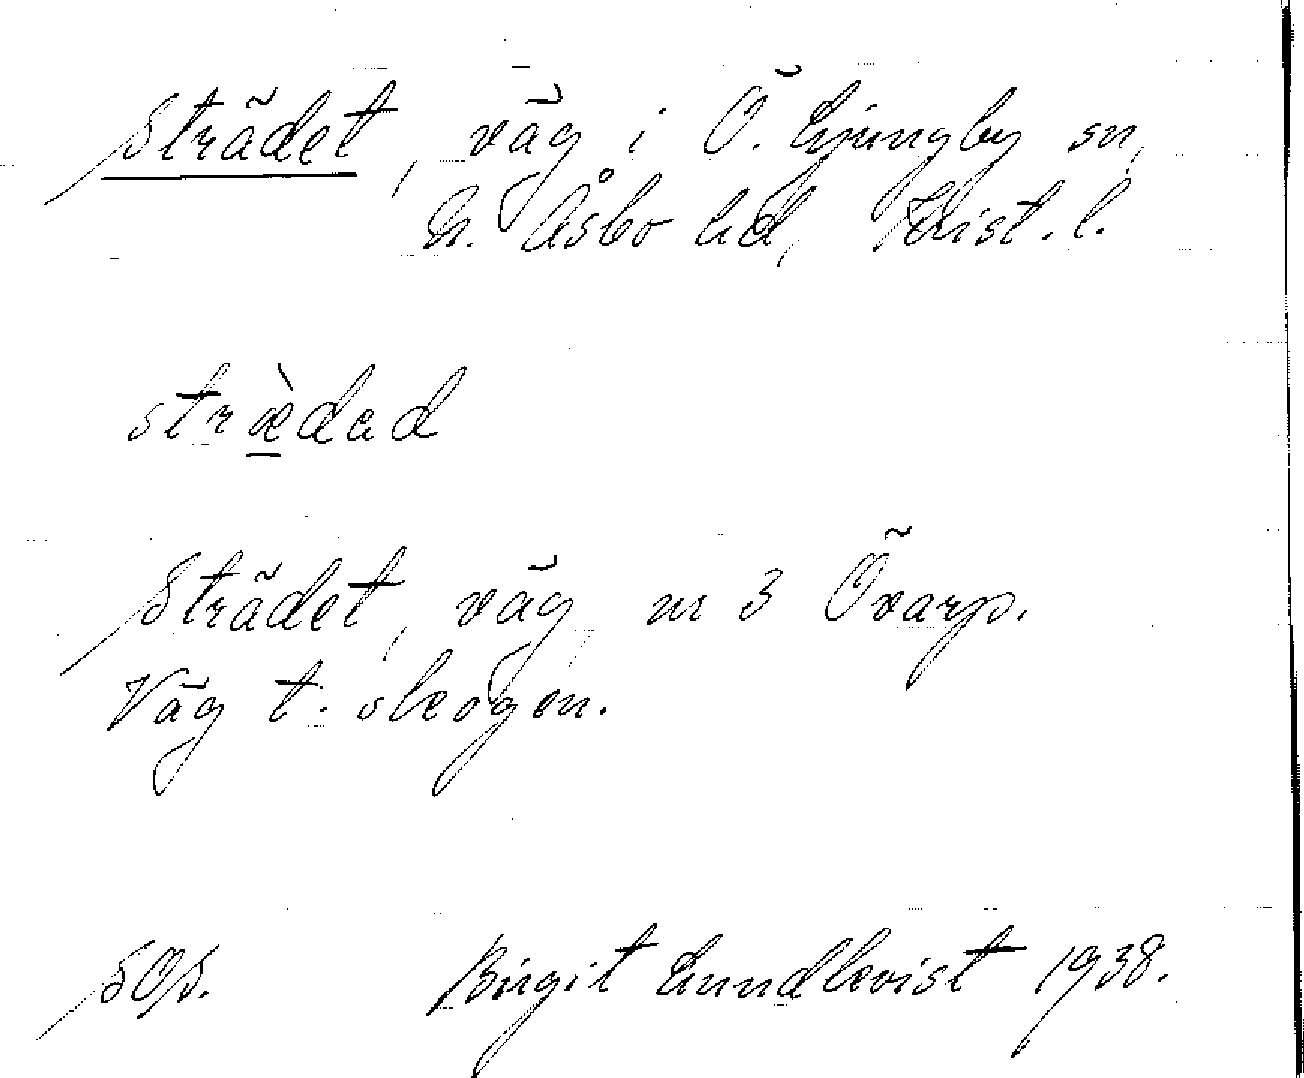 Strädet, väg i Ö. Ljungby sn,
N. Åsbo hd, Krist. l.
stræ̀dad
Strädet, väg nr 3 Öxarp.
Väg t. skogen.
SOS. Birgit Lundkvist 1938.